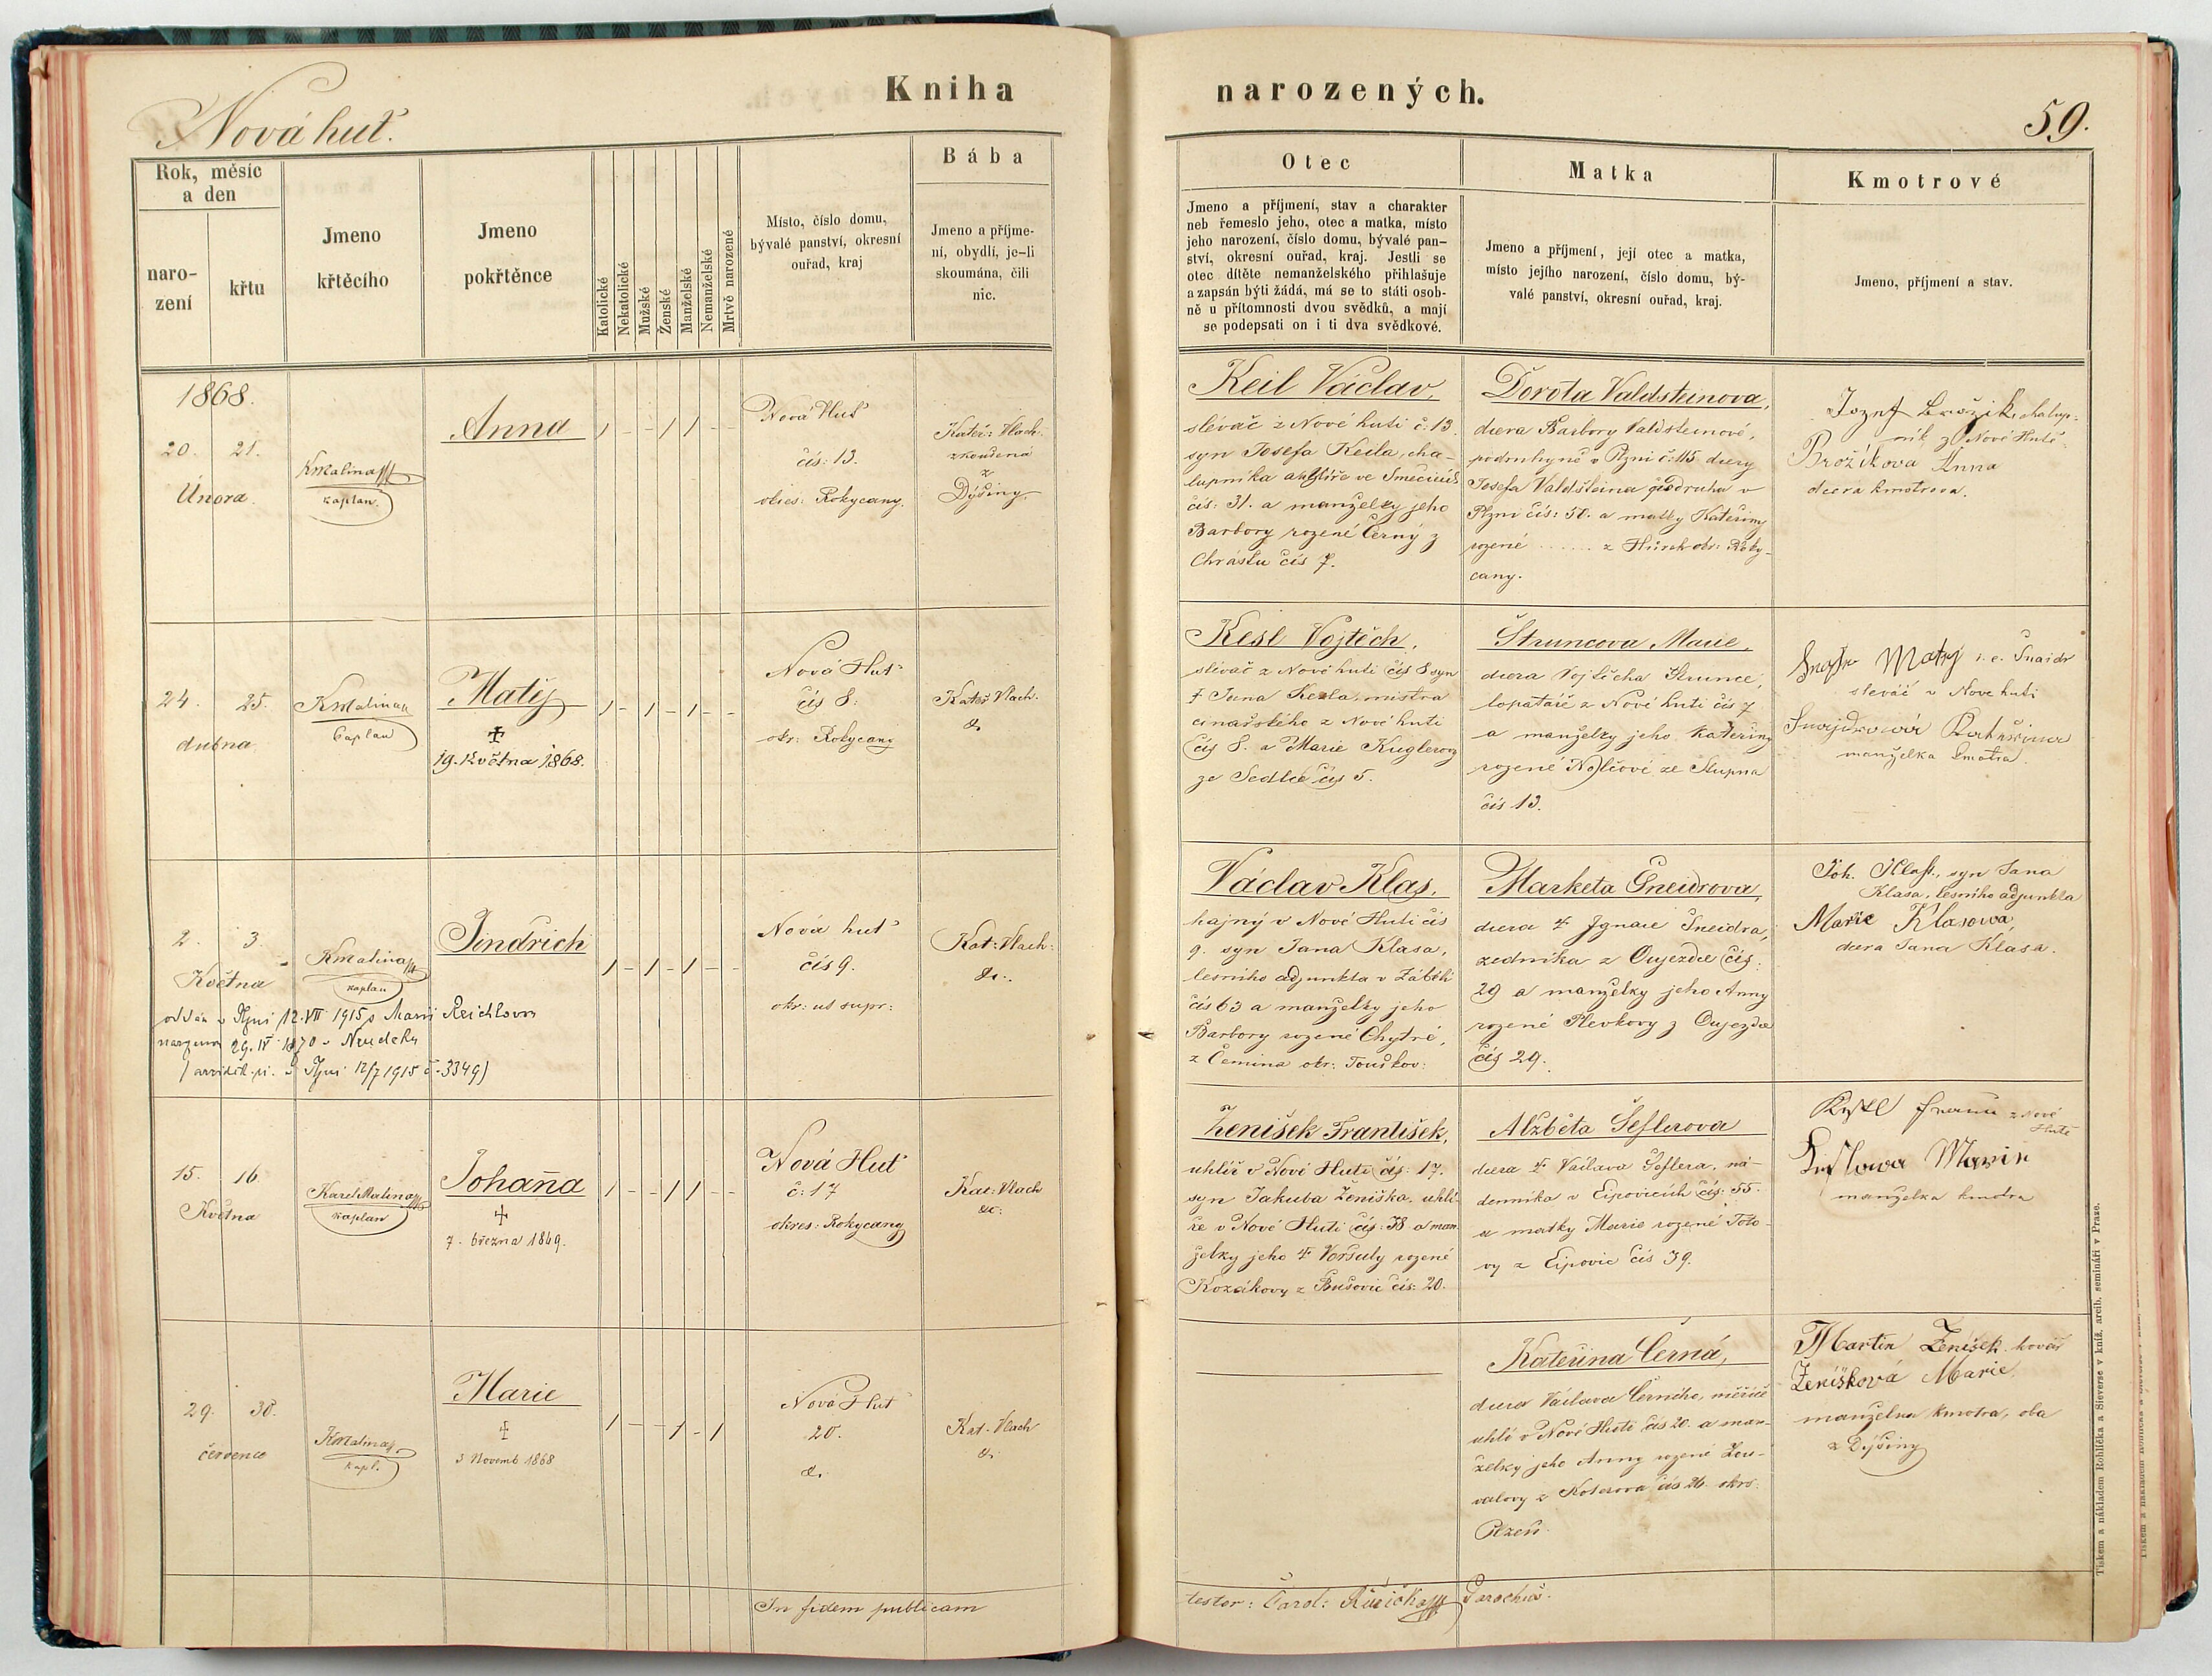 Kniha narozených.
Nová huť.
59.
Rok, měsíc
a den
naro-
zení
křtu
Jmeno
křtěcího
Jmeno
pokřtěnce
Katolické
Nekatolické
Mužské
Ženské
Manželské
Nemanželské
Mrtvě narozené
Místo, číslo domu,
bývalé panství, okresní
ouřad, kraj
Bába
Jmeno a příjme-
ní, obydlí, je-li
skoumána, čili
nic.
Otec
Jmeno a příjmení, stav a charakter
neb řemeslo jeho, otec a matka, místo
jeho narození, číslo domu, bývalé pan-
ství, okresní ouřad, kraj. Jestli se
otec dítěte nemanželského přihlašuje
a zapsán býti žádá, má se to státi osob-
ně u přítomnosti dvou svědků, a mají
se podepsati on i ti dva svědkové.
Matka
Jmeno a příjmení, její otec a matka,
místo jejího narození, číslo domu, bý-
valé panství, okresní ouřad, kraj.
Kmotrové
Jmeno, příjmení a stav.
1868.
20. 21.
Února
KMalina
kaplan.
Anna
Nová Huť
čís: 13.
okres: Rokycany.
Kateř: Vlach.
zkoušená
z
Dýšiny.
Keil Václav,
slévač z Nové huti č. 13.
syn Josefa Keila, cha-
lupníka ve Smědčicích
čís: 31. a manželky jeho
Barbory rozené Černý z
Chrástu čís 7.
Dorota Valdsteinova,
dcera Barbory Valdsteinové,
podruhyně v Plzni č: 115 dcery
Josefa Valdšteina podruha v
Plzni čís: 50. a matky Kateřiny
rozené ...... z okr: Roky-
cany.
Jozef Brožik, chalup-
ník z Nové Hutě
Brožíkova Anna
dcera kmotrova.
24. 25.
dubna
KMalina
Caplan
Matěj
19. Května 1868.
Nová Huť
čís 8.
okr: Rokycany
Kateř Vlach.
&
Kesl Vojtěch,
slévač z Nové huti čís 8 syn
† Jana Kesla, mistra
z Nové huti
čís 8. a Marie Kuglerovy
ze Sedlce čís 5.
Štruncova Marie,
dcera Vojtěcha Štrunce,
lopatáře z Nové huti čís 7
a manželky jeho Kateřiny
rozené ze Stupna
čís 13.
Matěj i. e. Šnaidr
slevač v Nove huti
manželka kmotra.
2. 3.
Května
KMalina
kaplan
Jindřich
oddán v Plzni 12. VII 1915 s Marií Reichlovou
narozenou 29. IV 1870 v Neudeku
v Plzni 12/7 1915 č. 3349)
Nová huť
čís 9.
okr: ut supr:
Kat: Vlach:
&.
Václav Klas,
hajný v Nové Huti čís
9. syn Jana Klasa,
lesního adjunkta v Záběhlí
čís 63 a manželky jeho
Barbory rozené Chytré,
z Čemína okr: Touškov:
Marketa Šneidrova,
dcera † Ignace Šneidra,
zedníka z Oujezdce čís:
29 a manželky jeho Anny
rozené Plevkovy z Oujezdce
čís 29.
Joh. Klas, syn Jana
Klasa, lesního adjunkta
Marie Klasowa,
dcera Jana Klasa.
15. 16.
Května
Karel Malina
kaplan
Johana
7. března 1869.
Nová Huť
č: 17
okres: Rokycany
Kat: Vlach
&c:
Ženišek František,
uhlíř v Nové Huti čís: 17.
syn Jakuba Ženíška, uhlí-
ře v Nové Huti čís: 38 a man
želky jeho † Voršuly rozené
Kozákovy z Bušovic čís: 20.
Alžběta Šeflerova
dcera † Václava Šeflera, ná-
denníka v Ejpovicích čís: 55.
a matky Marie rozené Toto-
vy z Ejpovic čís 39.
z Nové
Hutě
Marie
manželka kmotra
29. 30.
července
KMalina
kapl.
Marie
3 Novemb 1868
Nová Huť
20.
&.
Kat. Vlach
&.
Kateřina Černá,
dcera Václava Černého, měřiče
uhlí v Nové Huti čís 20. a man-
želky jeho Anny rozené Lou-
valovy z Koterova čís 26. okres:
Plzeň.
Martin Ženíšek kovář
Ženíšková Marie,
manželka kmotra, oba
z Dýšiny
In fidem publicam
testor: Carol: Růžička Parochus.
Tiskem a nákladem Rohlíčka a Sieverse v kníž. arcib. semináři v Praze.